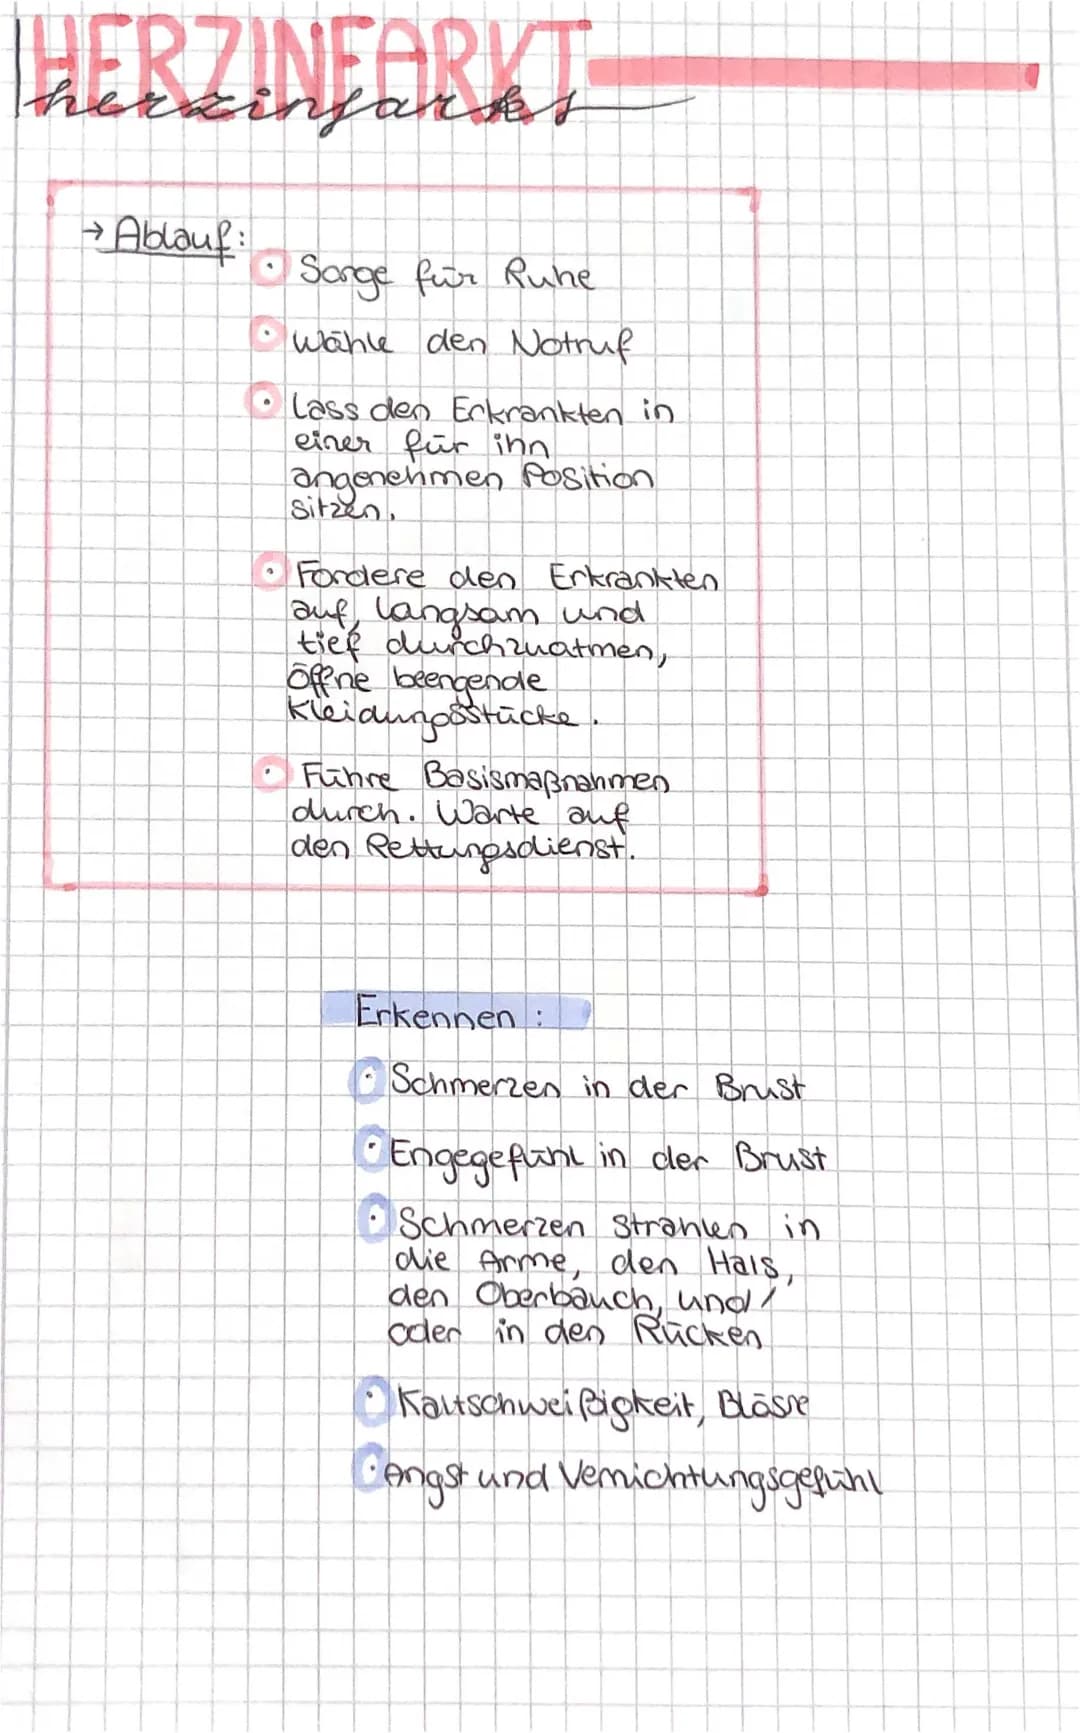 HERZINFARKT
herzinfarkt
→ Ablauf:
• Sorge für Ruhe
• Wähle den Notruf
• Lass den Erkrankten in
einer für ihn
angenehmen Position
sitzen.
• Fordere den Erkrankten
auf, langsam und
tief durchzuatmen,
Öffne beengende
Kleidungsstücke.
• Führe Basismaßnahmen
durch. Warte auf
den Rettungsdienst.
Erkennen :
• Schmerzen in der Brust
• Engegefühl in der Brust
• Schmerzen strahlen in
die Arme, den Hals,
den Oberbauch, und/
oder in den Rücken
• Kaltschweißigkeit, Blässe
• Angst und Vernichtungsgefühl